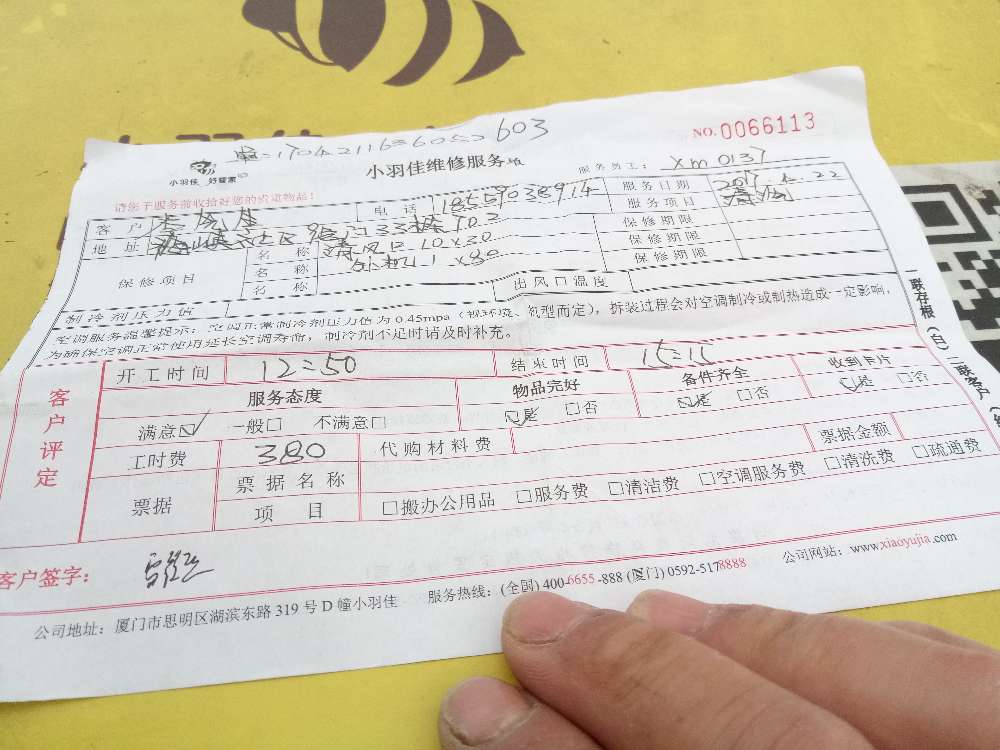 603
NO.0066113
小羽佳 好管家
小羽佳维修服务
服务员工: xm0137
请您于服务前收拾好您的贵重物品!
客户 电话 服务日期 2017.4.22
地址 33 703 服务项目 清洗
保修项目 名称 清风口 10x30 保修期限
名称 外机 1x80 保修期限
名称 保修期限
制冷剂压力值 出风口温度
空调服务温馨提示: 空调正常制冷剂压力值为0.45mpa(视环境、机型而定), 拆装过程会对空调制冷或制热造成一定影响,
为确保空调正常使用延长空调寿命, 制冷剂不足时请及时补充。
客户评定
开工时间 12=50 结束时间 15=15
服务态度 物品完好 备件齐全 收到卡片
满意☑ 一般□ 不满意□ ☑是 □否 ☑是 □否 ☑是 □否
工时费 380 代购材料费 票据金额
票据 票据名称
项目 □搬办公用品 □服务费 □清洁费 □空调服务费 □清洗费 □疏通费
客户签字:
公司地址: 厦门市思明区湖滨东路319号D幢小羽佳 服务热线: (全国) 400-6655-888 (厦门) 0592-5178888 公司网站: www.xiaoyujia.com
一联存根(白) 二联客户